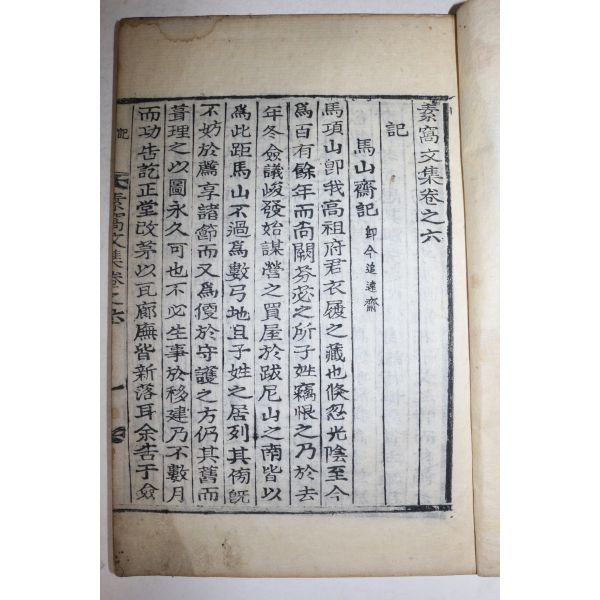 素窩文集卷之六
記
馬山齋記 即今追遠齋
馬項山即我高祖府君衣履之藏也倏忽光陰至今
爲百有餘年而尙闕芬苾之所子姓竊恨之乃於去
年冬僉議峻發始謀營之買屋於跋尼山之南皆以
爲此距馬山不過爲數弓地且子姓之居列其傍旣
不妨於薦享諸節而又爲便於守護之方仍其舊而
葺理之以圖永久可也不必生事於移建乃不數月
而功告訖正堂改茅以瓦廊廡皆新落耳余告于僉
記
素窩文集卷之六
一